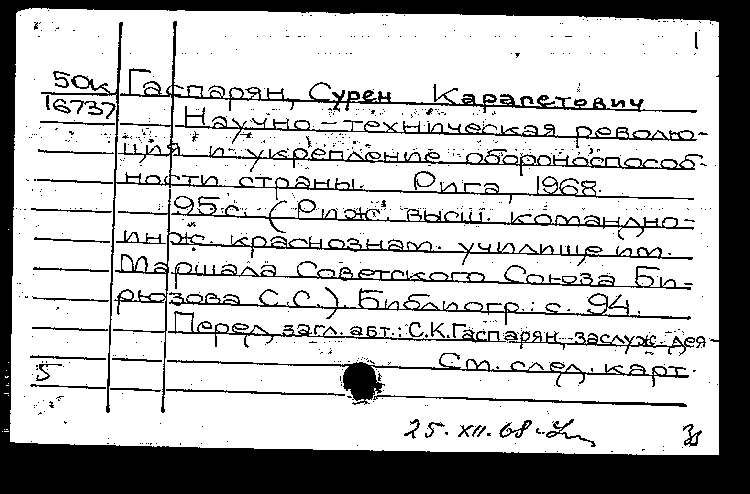 1
50к Гаспарян, Сурен Карапетович
16737 Научно-техническая револю-
ция и укрепление обороноспособ-
ности страны. Рига, 1968.
95 с. (Риж. высш. командно-
инж. краснознам. училище им.
Маршала Советского Союза Би-
рюзова С.С.). Библиогр.: с. 94.
Перед загл. авт.: С.К.Гаспарян, заслуж. дея-
См. след. карт.
5
25.XII.68